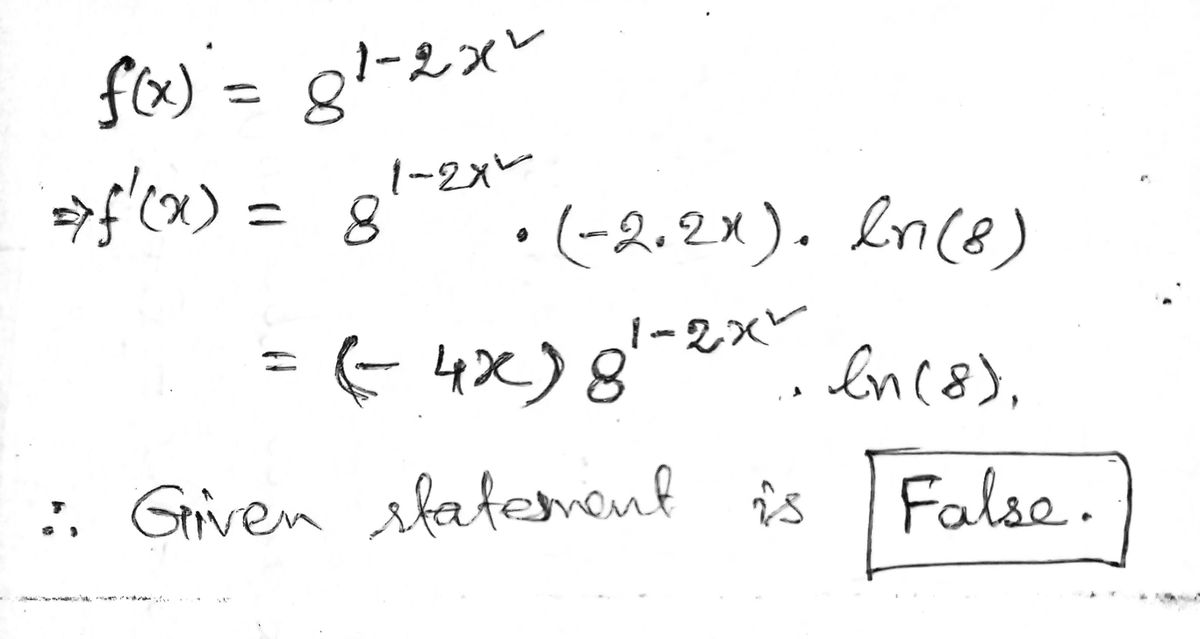 f(x) = 8^{1-2x²}
⇒ f'(x) = 8^{1-2x²} . (-2.2x). ln(8)
= (- 4x) 8^{1-2x²} . ln(8).
∴ Given statement is False.